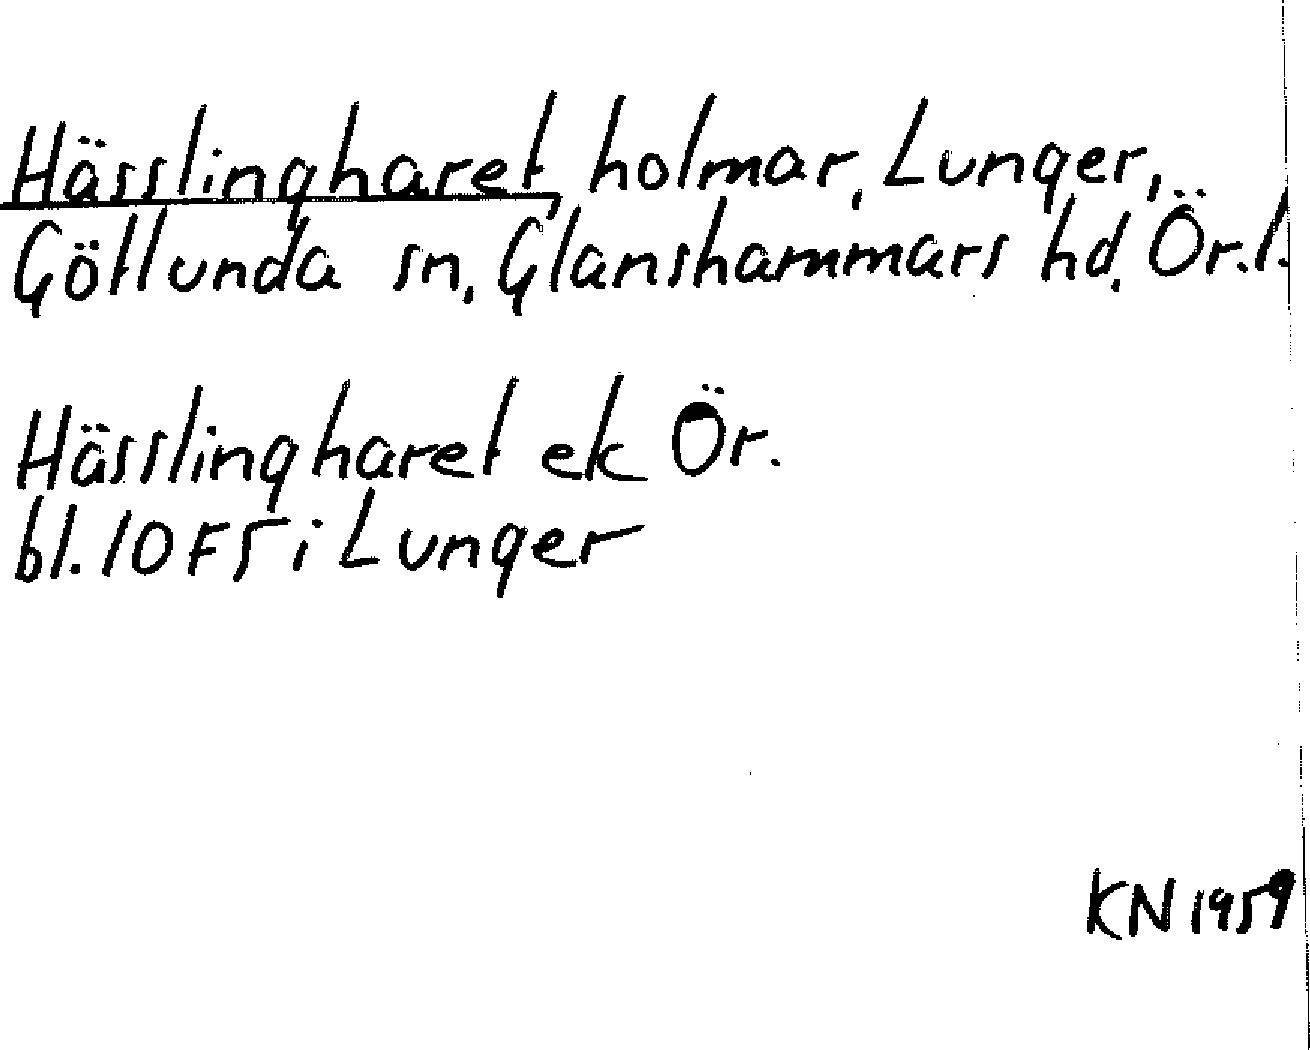 Hässlingharet, holmar, Lunger,
Götlunda sn, Glanshammars hd, Ör.l.
Hässlingharet ek Ör.
bl. 10F5 i Lunger
KN 1959